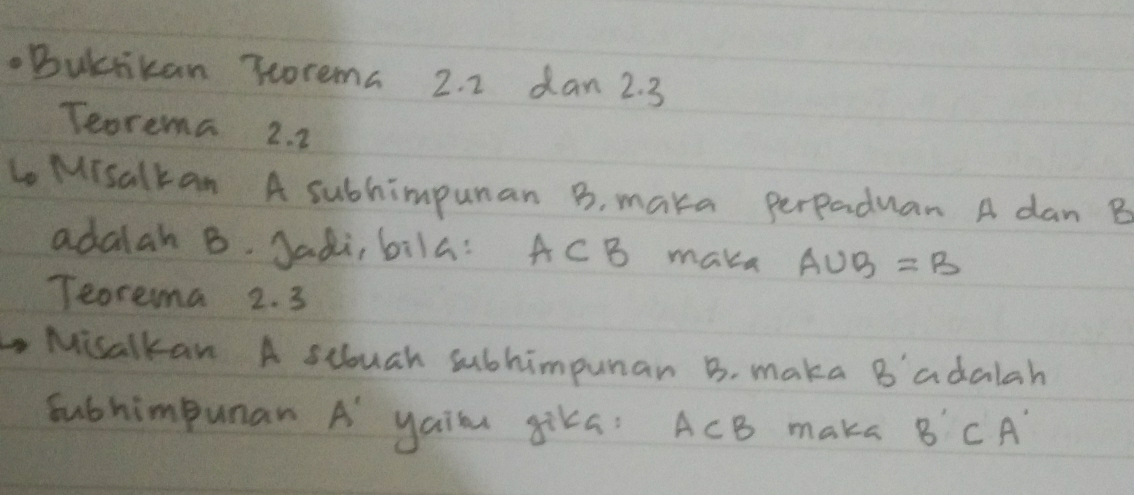 •Buktikan Teorema 2.2 dan 2.3
Teorema 2.2
↳ Misalkan A subhimpunan B, maka perpaduan A dan B
adalah B. Jadi, bila: A⊂B maka A∪B = B
Teorema 2.3
→ Misalkan A sebuah subhimpunan B. maka B' adalah
subhimpunan A' yaitu jika: A⊂B maka B'⊂A'